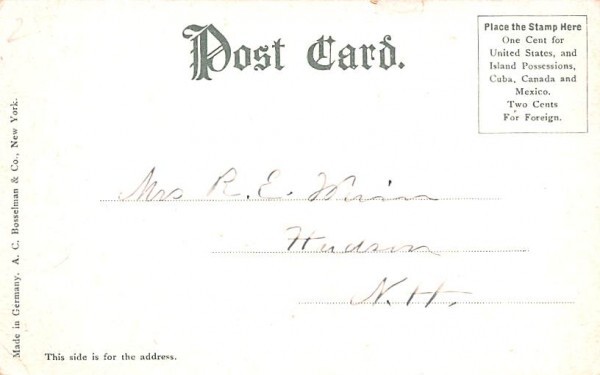 Post Card.
Place the Stamp Here
One Cent for
United States, and
Island Possessions,
Cuba, Canada and
Mexico.
Two Cents
For Foreign.
Mrs R. E. Winn
Hudson
N. H.
Made in Germany. A. C. Bosselman & Co., New York.
This side is for the address.